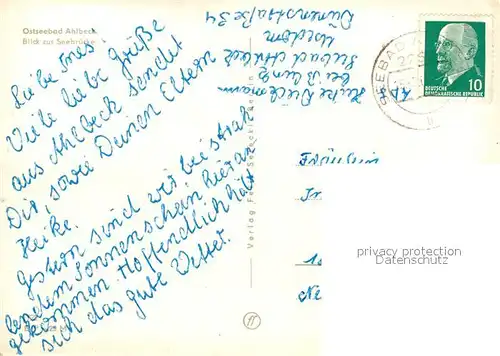 Ostseebad Ahlbeck
Blick zur Seebrücke
Liebe Ines!
Viele liebe Grüße
aus Ahlbeck sendet
Dir, sowie Deinen Eltern
Heike.
Gestern sind wir bei strah-
lendem Sonnenschein hier an-
gekommen. Hoffentlich hält
sich das gute Wetter.
Heike
bei
Seebad Ahlbeck
Usedom
Dünenstraße 34
Verlag
SEEBAD
DEUTSCHE
DEMOKRATISCHE REPUBLIK
10
Fräulein
privacy protection
Datenschutz